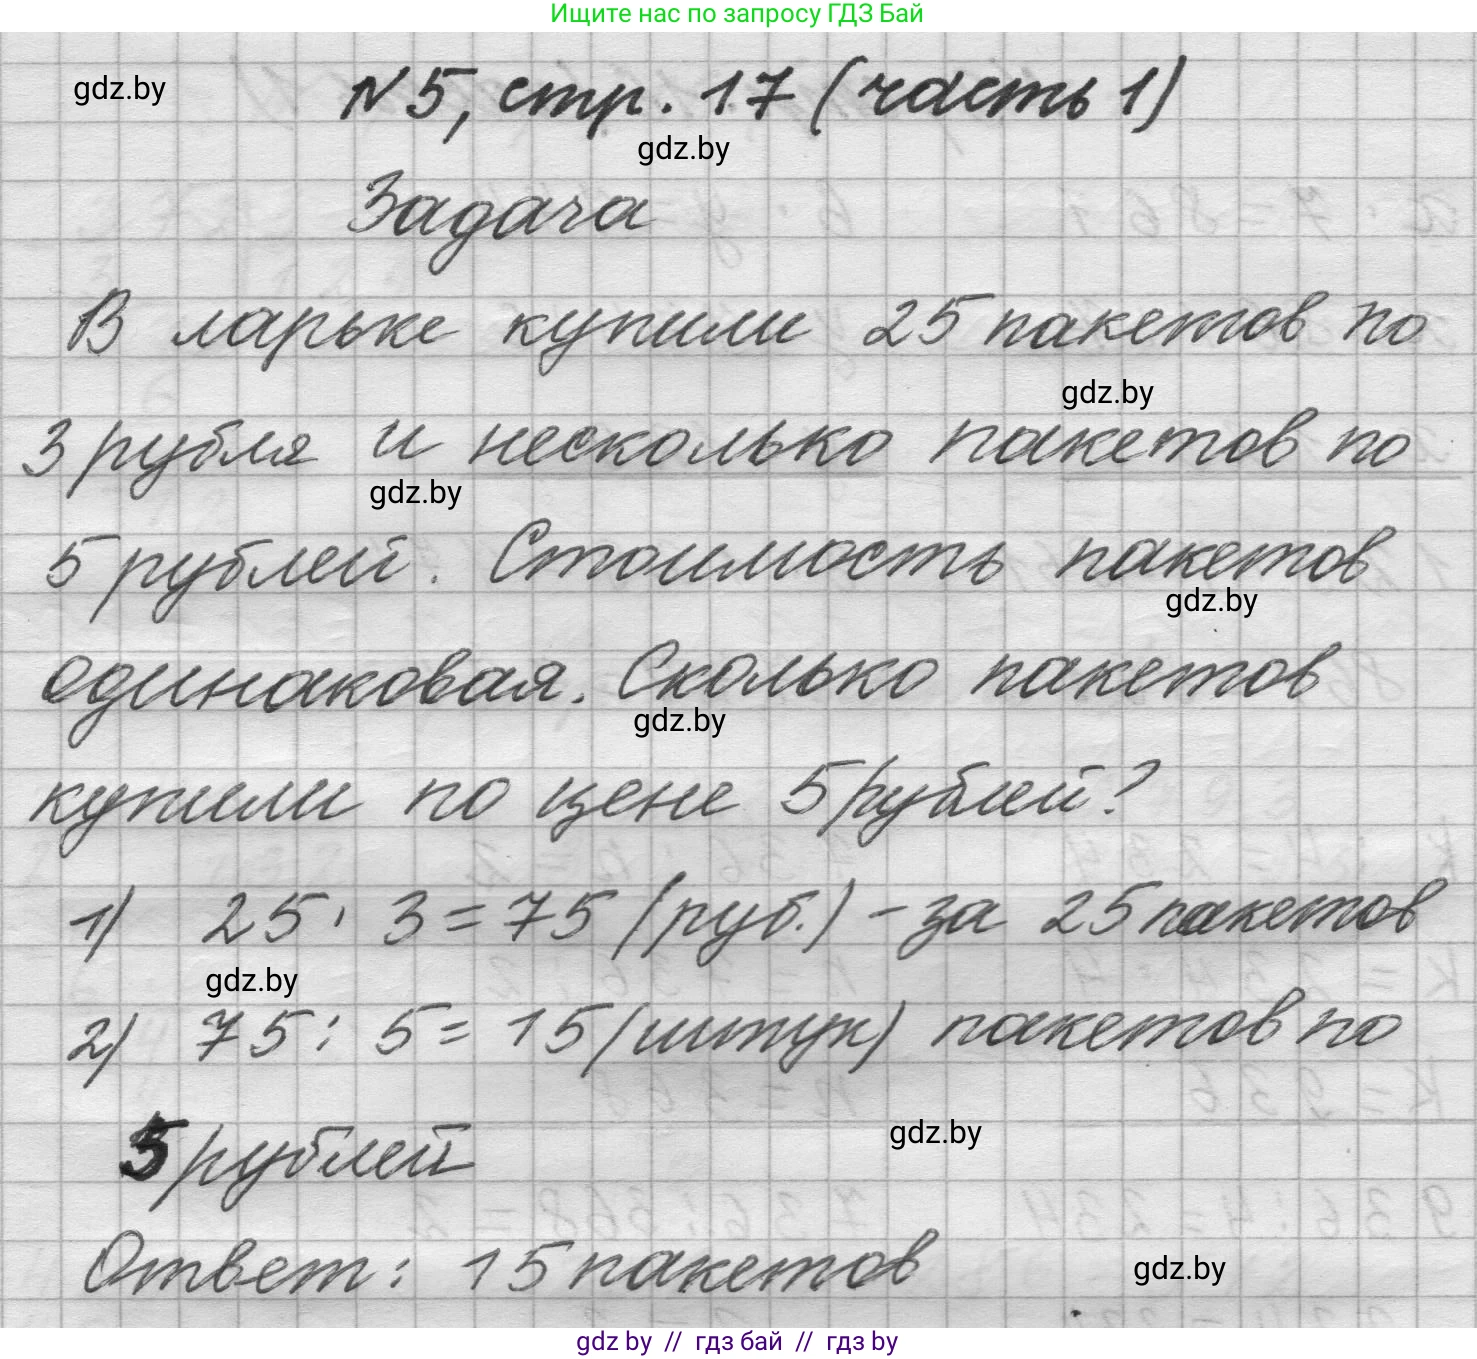 Ищите нас по запросу ГДЗ Бай
gdz.by
№5, стр. 17 (часть 1)
gdz.by
Задача
В ларьке купили 25 пакетов по
gdz.by
3 рубля и несколько пакетов по
gdz.by
5 рублей. Стоимость пакетов
gdz.by
одинаковая. Сколько пакетов
gdz.by
купили по цене 5 рублей?
1) 25 · 3 = 75 (руб.) – за 25 пакетов
gdz.by
2) 75 : 5 = 15 (штук) пакетов по
gdz.by
5 рублей
Ответ: 15 пакетов
gdz.by
gdz by // гдз бай // гдз by